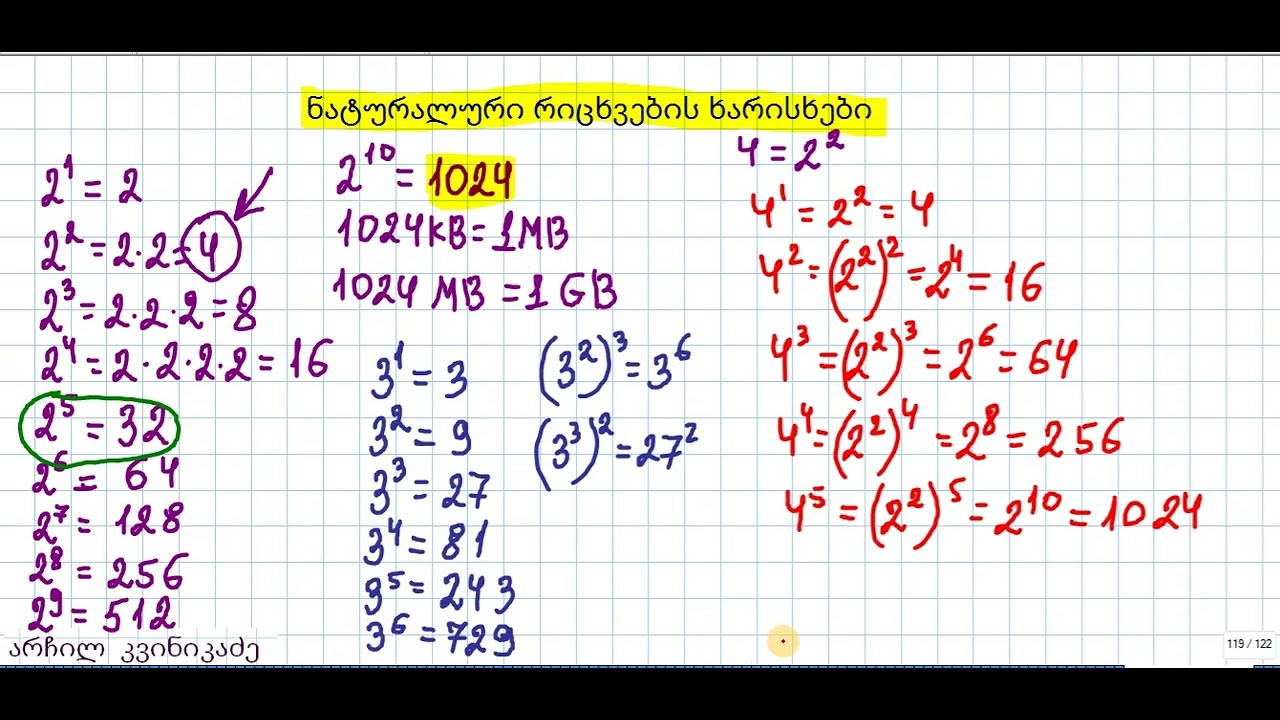 ნატურალური რიცხვების ხარისხები
2¹ = 2
2² = 2·2 = 4
2³ = 2·2·2 = 8
2⁴ = 2·2·2·2 = 16
2⁵ = 32
2⁶ = 64
2⁷ = 128
2⁸ = 256
2⁹ = 512
არჩილ კვინიკაძე
2¹⁰ = 1024
1024KB = 1MB
1024 MB = 1 GB
3¹ = 3
3² = 9
3³ = 27
3⁴ = 81
3⁵ = 243
3⁶ = 729
(3²)³ = 3⁶
(3³)² = 27²
4 = 2²
4¹ = 2² = 4
4² = (2²)² = 2⁴ = 16
4³ = (2²)³ = 2⁶ = 64
4⁴ = (2²)⁴ = 2⁸ = 256
4⁵ = (2²)⁵ = 2¹⁰ = 1024
119 / 122